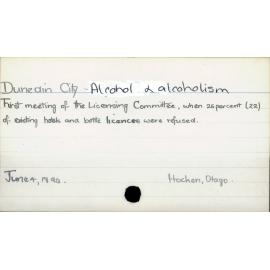 Dunedin City - Alcohol & alcoholism
First meeting of the Licensing Committee, when 25 percent (22)
of existing hotels and bottle licences were refused.
June 4, 1890. Hocken, Otago.